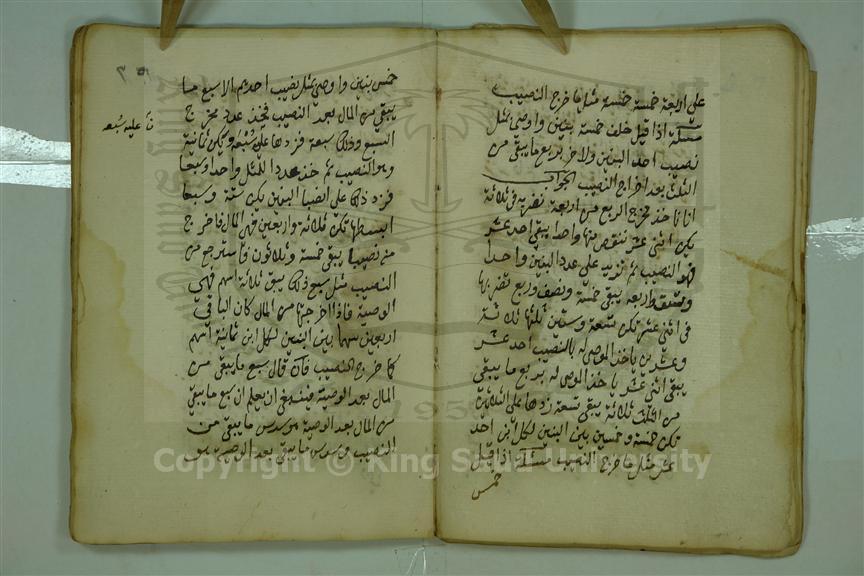 على اربعة خمسة خمسة مثل ما خرج النصيب
مسئلة اذا قيل خلف خمسة بنين واوصى بمثل
نصيب احد البنين ولاخر بربع ما يبقى من
الثلث بعد اخراج النصيب الجواب
انا ناخذ مخرج الربع من اربعة نضربه في ثلاثة
يكن اثنى عشر ننقص منها واحدا يبقى احد عشر
فهو النصيب ثم نزيد على عدد البنين واحدا
ونسقط اربعه يبقى خمسة ونصف وربع نضربها
فى اثنى عشر تكن تسعة وستين ثلثها ثلاثة
وعشرين ياخذ الموصى له بالنصيب احد عشر
يبقى اثنى عشر ياخذ الموصى له بربع ما يبقى
من الثلث ثلاثة يبقى تسعة زدها على الثلاثين
تكن خمسة وخمسين بين البنين لكل ابن احد
عشر مثل ما خرج النصيب مسئلة اذا قيل
خمس
خمس بنين واوصى بمثل نصيب احدهم الا سبع ما
يبقى من المال بعد النصيب فخذ عدد مخرج
السبع وذلك سبعة فزدها على سُبُعه ويكن ثمانية
وهو النصيب ثم خذ عددا للمثل واحدا وسبعا
فزد ذلك على انصبا البنين يكن ستة وسبعا
ابسطها تكن ثلاثة واربعين فهى المال فاخرج
منه نصيبا يبقى خمسة وثلاثون فاسترجع من
النصيب مثل سبع ذلك يبق ثلاثة اسهم فهى
الوصية فاذا اخرجتها من المال كان الباقي
اربعين سهما بين البنين لكل ابن ثمانية اسهم
كما خرج النصيب فان قال سبع ما يبقى من
المال بعد الوصية فينبغى ان يعلم ان سبع ما يبقى
من المال بعد الوصية هو سدس ما يبقى من
النصيب وسدس ما يبقى بعد الوصية
عليه سُبُعه
Copyright © King Saud University